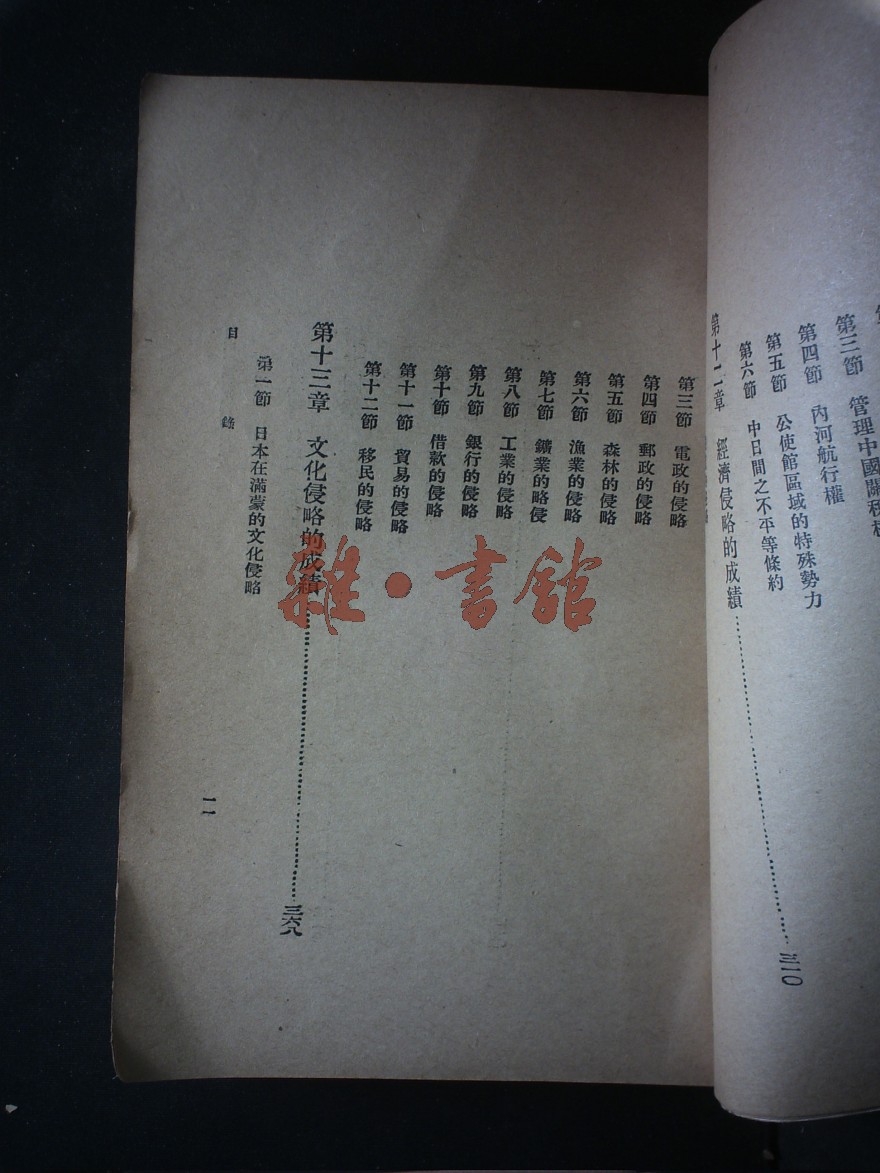 第三節 管理中國關稅
第四節 內河航行權
第五節 公使館區域的特殊勢力
第六節 中日間之不平等條約
第十二章 經濟侵略的成績 三二〇
第三節 電政的侵略
第四節 郵政的侵略
第五節 森林的侵略
第六節 漁業的侵略
第七節 鑛業的略侵
第八節 工業的侵略
第九節 銀行的侵略
第十節 借款的侵略
第十一節 貿易的侵略
第十二節 移民的侵略
第十三章 文化侵略的成績 三六八
第一節 日本在滿蒙的文化侵略
目錄
一一
雜·書館